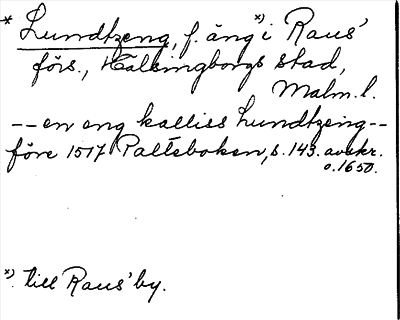 * Lundtzeng, f. äng *) i Raus'
förs., Hälsingborgs stad,
Malm. l.
-- en eng kalliss Lundtzeing --
före 1517 Palteboken, s. 143. avskr.
o. 1650.
*) till Raus' by.